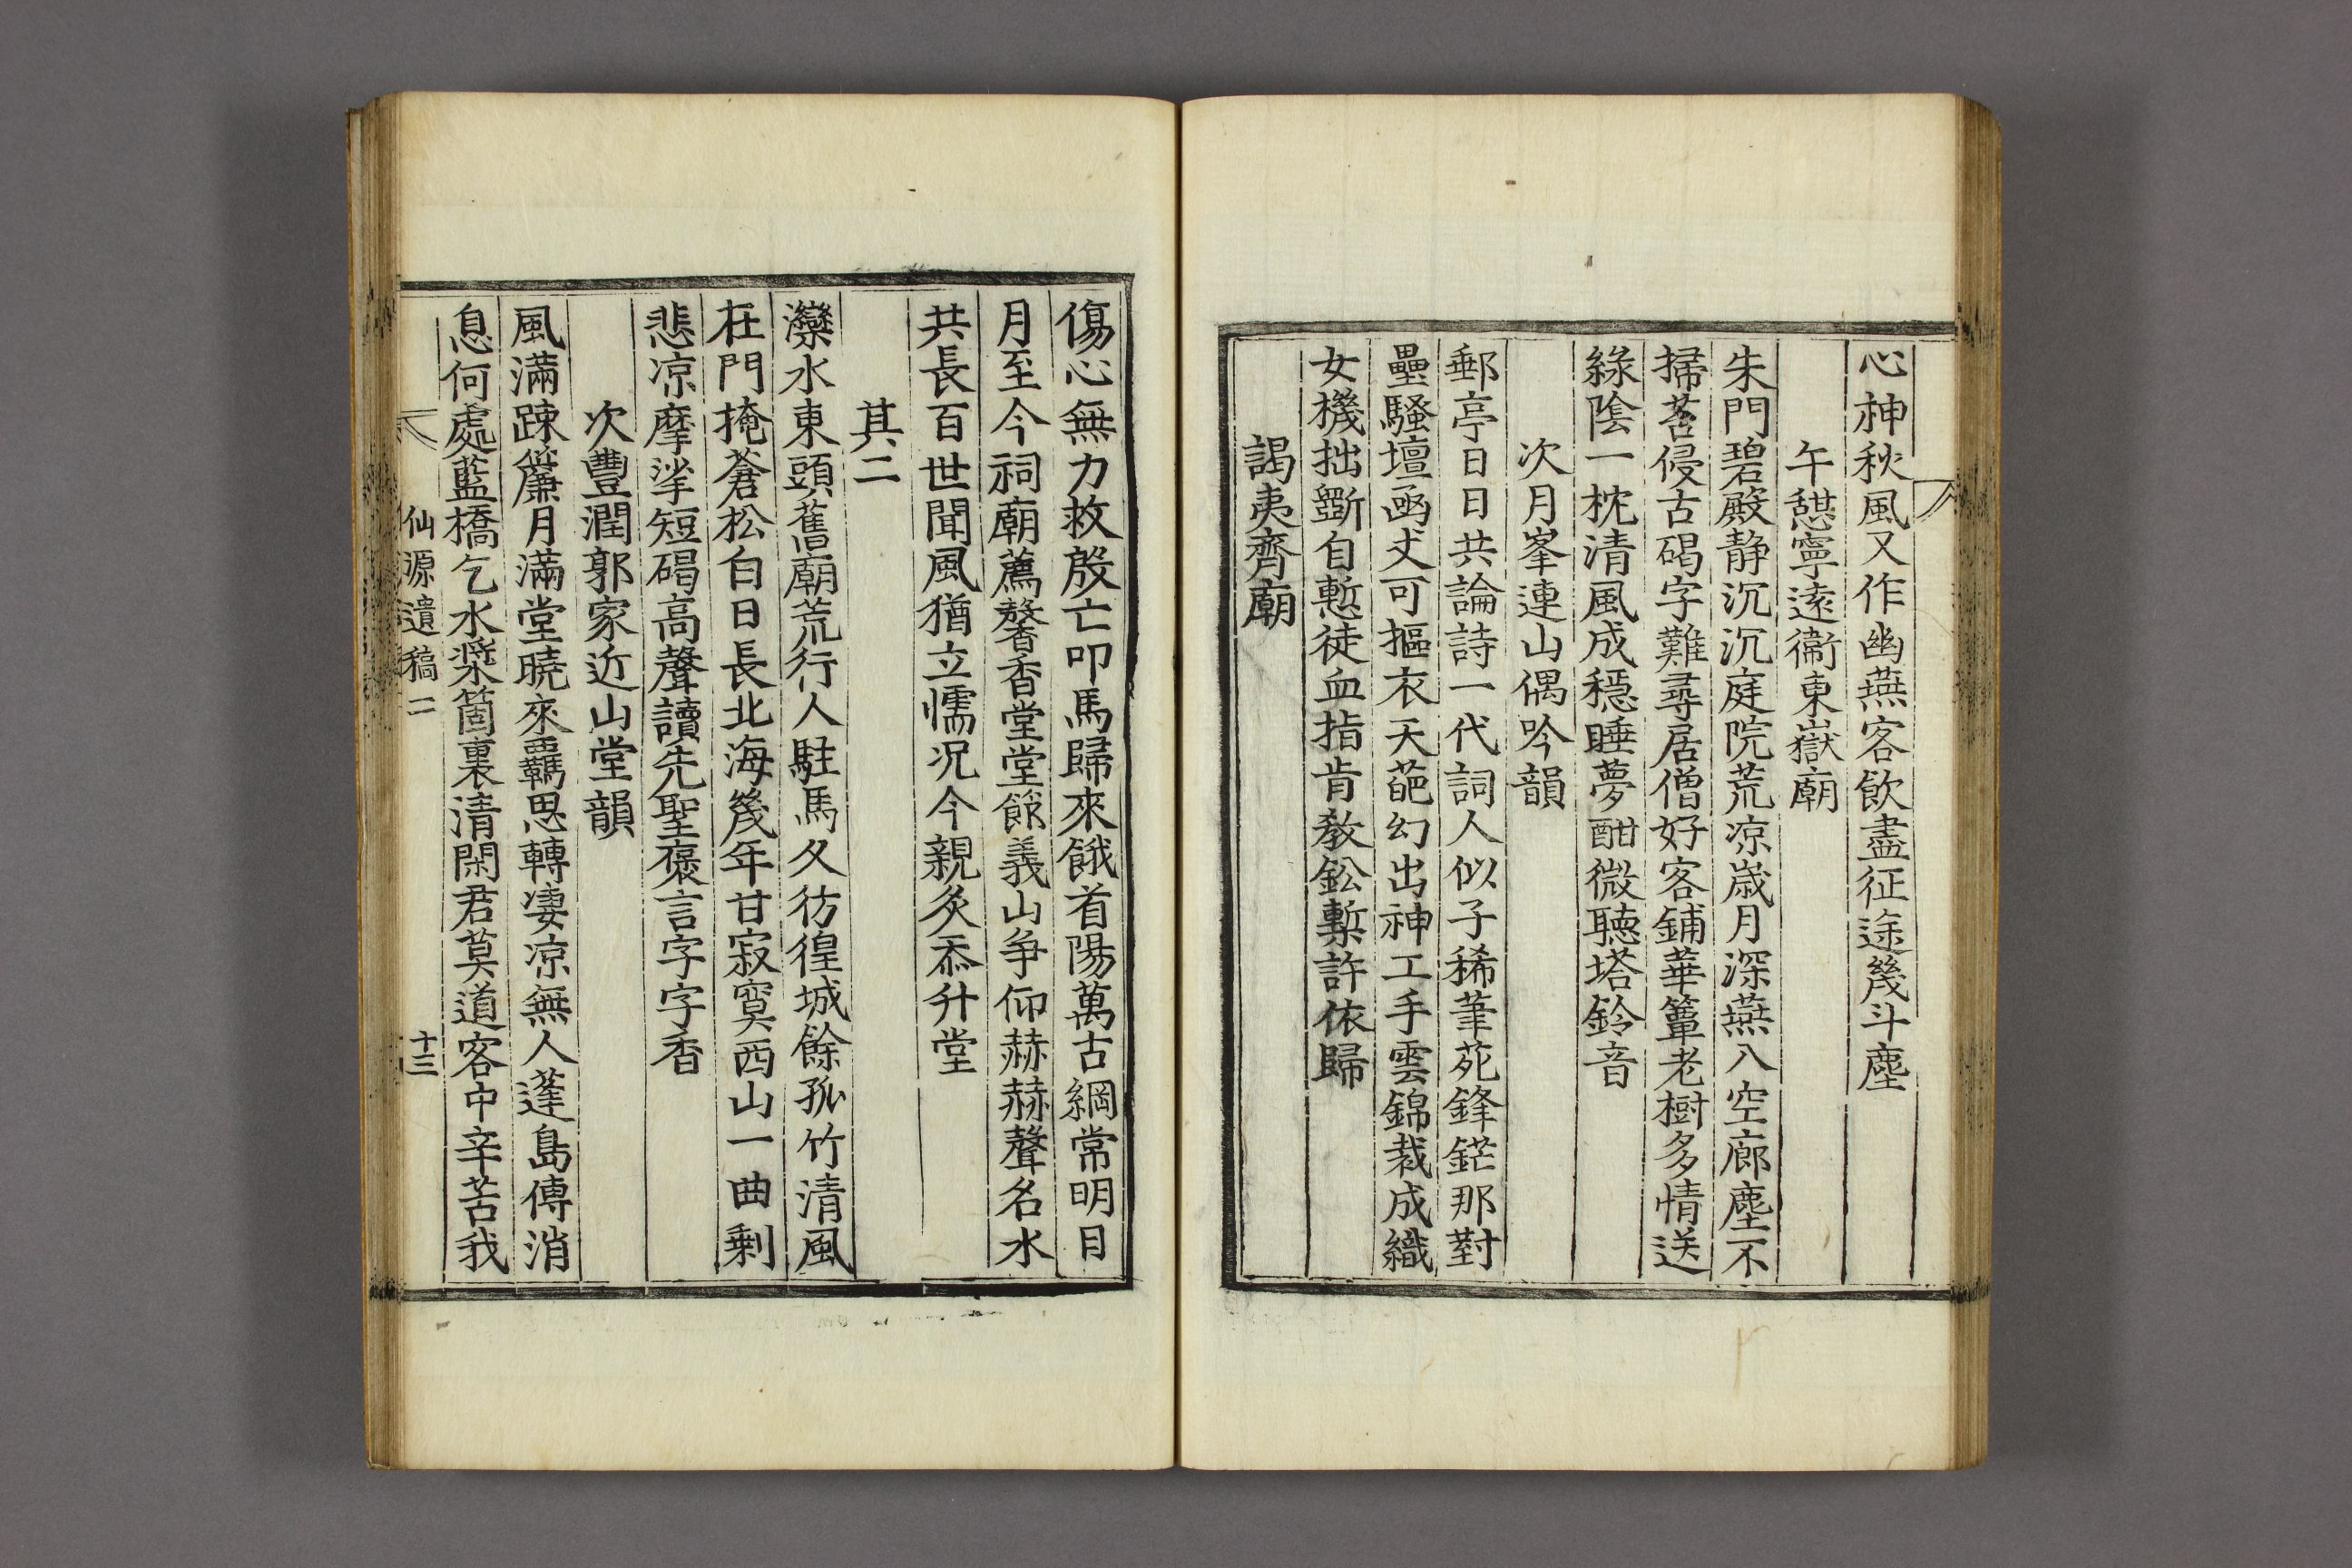 心神秋風又作幽燕客飮盡征途幾斗塵
午憩寧遠衞東嶽廟
朱門碧殿静沉沉庭院荒凉歲月深燕入空廊塵不
掃苔侵古碣字難尋居僧好客鋪華簟老樹多情送
綠陰一枕清風成穩睡夢酣微聽塔鈴音
次月峯連山偶吟韻
郵亭日日共論詩一代詞人似子稀筆苑鋒鋩那對
壘騷壇函丈可摳衣天葩幻出神工手雲錦裁成織
女機拙斵自慙徒血指肯敎鈆槧許依歸
謁夷齊廟
傷心無力救殷亡叩馬歸來餓首陽萬古綱常明日
月至今祠廟薦馨香堂堂節義山争仰赫赫聲名水
共長百世聞風猶立懦况今親炙忝升堂
其二
灤水東頭舊廟荒行人駐馬久彷徨城餘孤竹清風
在門掩蒼松白日長北海幾年甘寂寞西山一曲剩
悲凉摩挲短碣高聲讀先聖褒言字字香
次豐潤郭家近山堂韻
風滿踈簾月滿堂曉來覊思轉凄凉無人蓬島傳消
息何處藍橋乞水漿箇裏清閑君莫道客中辛苦我
仙源遺稿二 十三